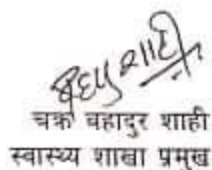 चक्र बहादुर शाही
स्वास्थ्य शाखा प्रमुख